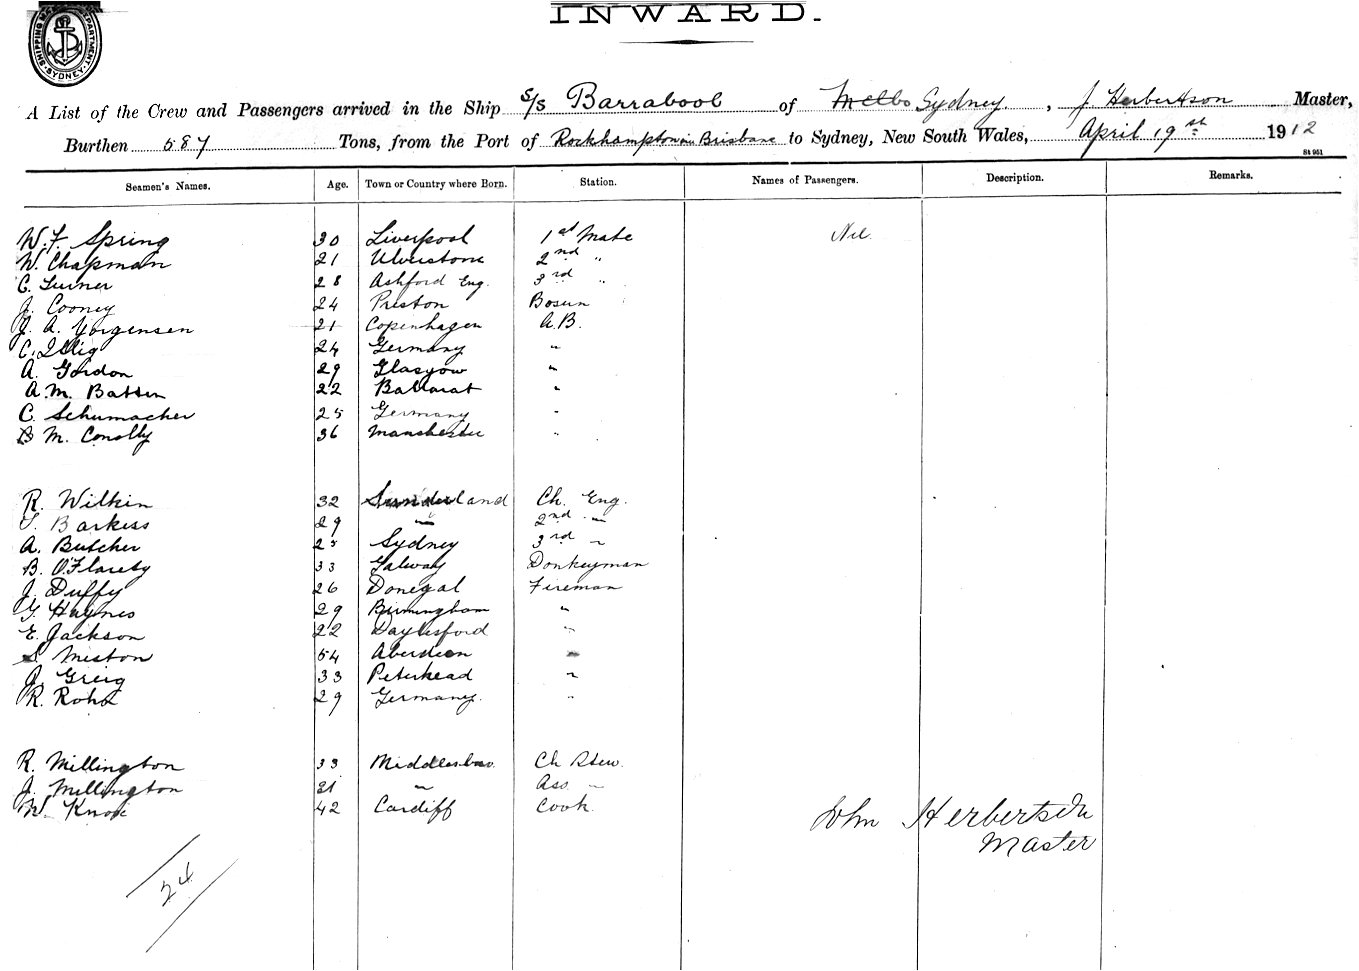 SHIPPING DEPARTMENT SYDNEY
INWARD.
A List of the Crew and Passengers arrived in the Ship S/S Barrabool of Melbo Sydney, J Herbertson Master,
Burthen 587 Tons, from the Port of Rockhampton via Brisbane to Sydney, New South Wales, April 19st 1912
St 951
Seamen's Names. Age. Town or Country where Born. Station. Names of Passengers. Description. Remarks.
W. F. Spring 30 Liverpool 1st Mate Nil.
W. Chapman 21 Ulverstone 2nd "
C. Turner 28 Ashford Eng. 3rd "
J. Cooney 24 Preston Bosun
J. A. Yorgensen 21 Copenhagen A.B.
C. Illig 24 Germany "
A. Gordon 29 Glasgow "
A. M. Batten 22 Ballarat "
C. Schumacher 25 Germany "
B M. Conolly 36 Manchester "
R. Wilkin 32 Sunderland Ch. Eng.
T. Barkess 29 " 2nd "
A. Butcher 25 Sydney 3rd "
B. O'Flarety 33 Galway Donkeyman
J. Duffy 26 Donegal Fireman
G. Haynes 29 Birmingham "
E. Jackson 22 Daylesford "
S. Meston 54 Aberdeen "
J. Greig 33 Peterhead "
R. Rohd 29 Germany. "
R. Millington 33 Middlesbro. Ch Stew.
J. Millington 31 " Ass "
W. Knox 42 Cardiff Cook
John Herbertson
Master
24